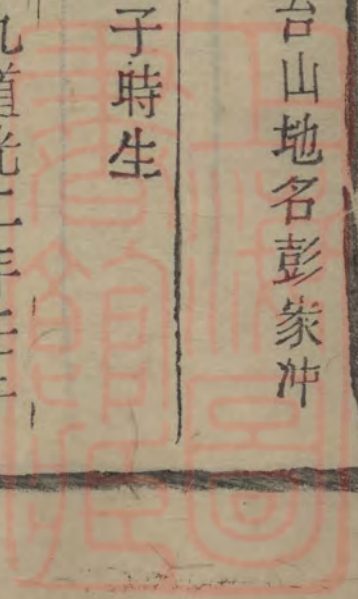 台山地名彭家冲
子時生
九道光二年壬午